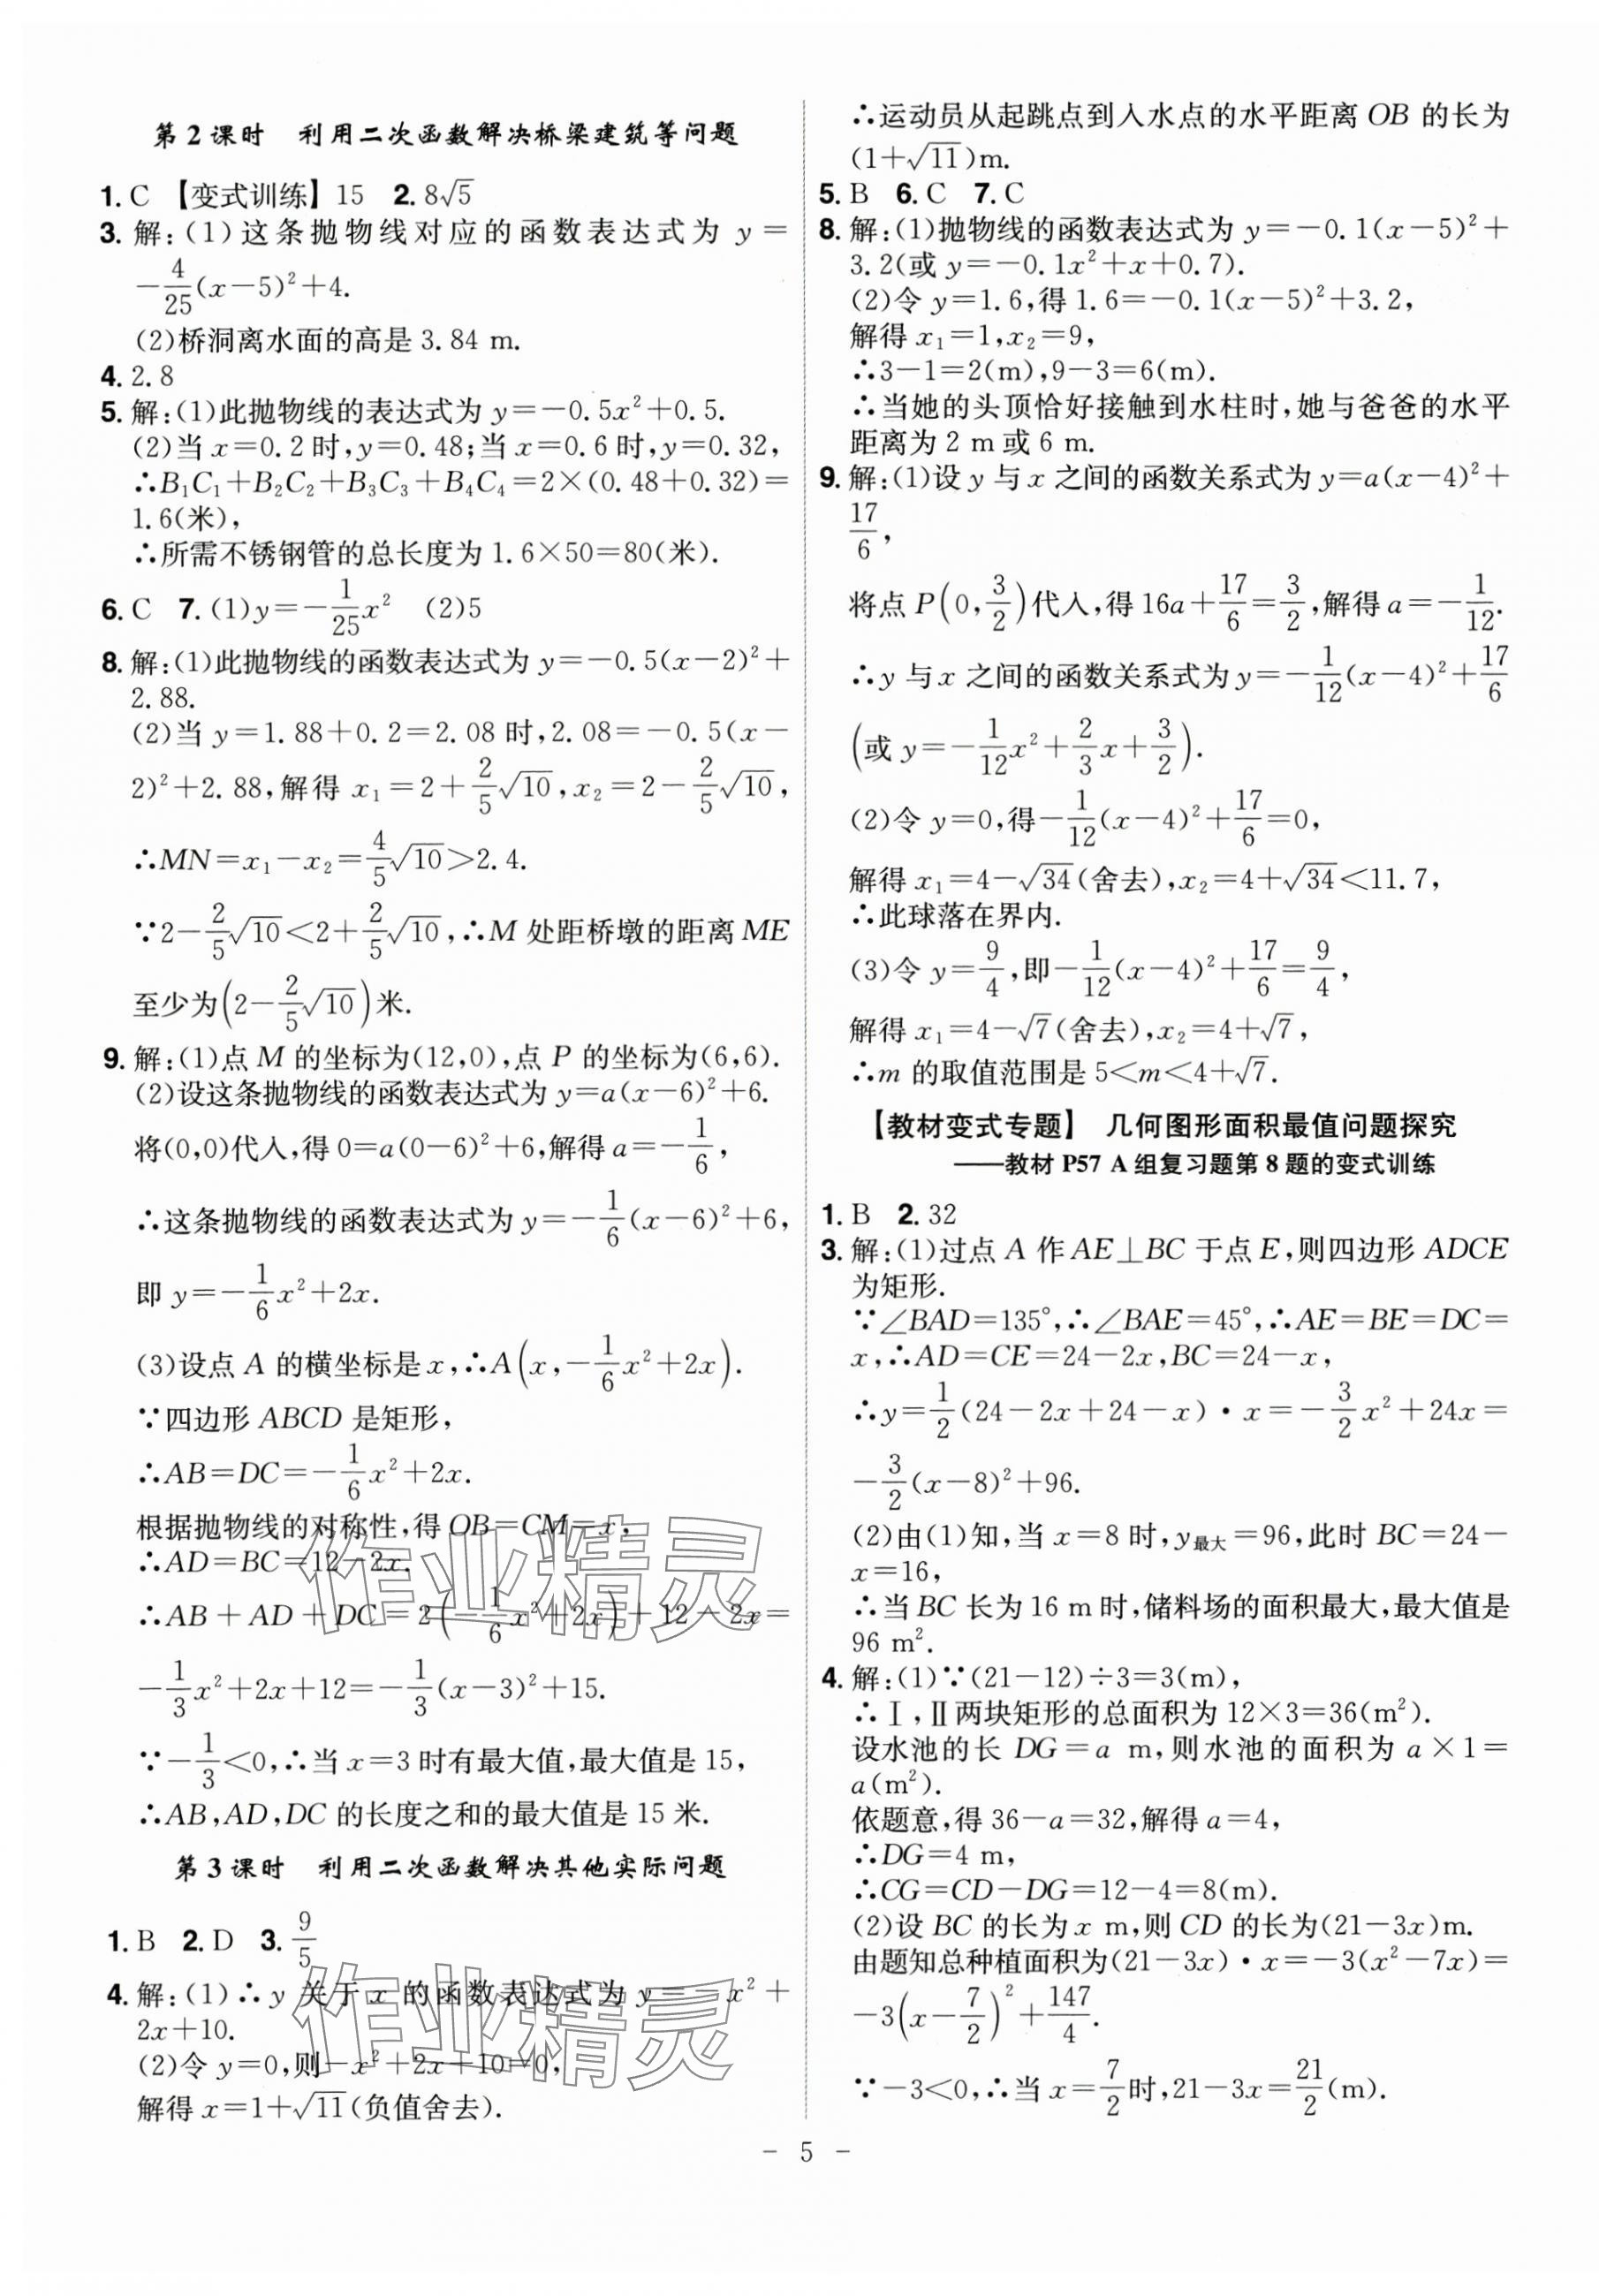 第2课时 利用二次函数解决桥梁建筑等问题
1. C 【变式训练】15 2. 8√5
3. 解:(1)这条抛物线对应的函数表达式为 y=
-4/25(x-5)²+4.
(2)桥洞离水面的高是 3.84 m.
4. 2.8
5. 解:(1)此抛物线的表达式为 y=-0.5x²+0.5.
(2)当 x=0.2 时,y=0.48;当 x=0.6 时,y=0.32,
∴B₁C₁+B₂C₂+B₃C₃+B₄C₄=2×(0.48+0.32)=
1.6(米),
∴所需不锈钢管的总长度为 1.6×50=80(米).
6. C 7. (1)y=-1/25x² (2)5
8. 解:(1)此抛物线的函数表达式为 y=-0.5(x-2)²+
2.88.
(2)当 y=1.88+0.2=2.08 时,2.08=-0.5(x-
2)²+2.88,解得 x₁=2+2/5√10,x₂=2-2/5√10,
∴MN=x₁-x₂=4/5√10>2.4.
∵2-2/5√10<2+2/5√10,∴M 处距桥墩的距离 ME
至少为(2-2/5√10)米.
9. 解:(1)点 M 的坐标为(12,0),点 P 的坐标为(6,6).
(2)设这条抛物线的函数表达式为 y=a(x-6)²+6.
将(0,0)代入,得 0=a(0-6)²+6,解得 a=-1/6,
∴这条抛物线的函数表达式为 y=-1/6(x-6)²+6,
即 y=-1/6x²+2x.
(3)设点 A 的横坐标是 x,∴A(x,-1/6x²+2x).
∵四边形 ABCD 是矩形,
∴AB=DC=-1/6x²+2x.
根据抛物线的对称性,得 OB=CM=x,
∴AD=BC=12-2x.
∴AB+AD+DC=2(-1/6x²+2x)+12-2x=
-1/3x²+2x+12=-1/3(x-3)²+15.
∵-1/3<0,∴当 x=3 时有最大值,最大值是 15,
∴AB,AD,DC 的长度之和的最大值是 15 米.
第3课时 利用二次函数解决其他实际问题
1. B 2. D 3. 9/5
4. 解:(1)∴y 关于 x 的函数表达式为 y=-x²+
2x+10.
(2)令 y=0,则-x²+2x+10=0,
解得 x=1+√11(负值舍去).
∴运动员从起跳点到入水点的水平距离 OB 的长为
(1+√11)m.
5. B 6. C 7. C
8. 解:(1)抛物线的函数表达式为 y=-0.1(x-5)²+
3.2(或 y=-0.1x²+x+0.7).
(2)令 y=1.6,得 1.6=-0.1(x-5)²+3.2,
解得 x₁=1,x₂=9,
∴3-1=2(m),9-3=6(m).
∴当她的头顶恰好接触到水柱时,她与爸爸的水平
距离为 2 m 或 6 m.
9. 解:(1)设 y 与 x 之间的函数关系式为 y=a(x-4)²+
17/6,
将点 P(0,3/2)代入,得 16a+17/6=3/2,解得 a=-1/12.
∴y 与 x 之间的函数关系式为 y=-1/12(x-4)²+17/6
(或 y=-1/12x²+2/3x+3/2).
(2)令 y=0,得-1/12(x-4)²+17/6=0,
解得 x₁=4-√34(舍去),x₂=4+√34<11.7,
∴此球落在界内.
(3)令 y=9/4,即-1/12(x-4)²+17/6=9/4,
解得 x₁=4-√7(舍去),x₂=4+√7,
∴m 的取值范围是 5<m<4+√7.
【教材变式专题】 几何图形面积最值问题探究
——教材 P57 A 组复习题第 8 题的变式训练
1. B 2. 32
3. 解:(1)过点 A 作 AE⊥BC 于点 E,则四边形 ADCE
为矩形.
∵∠BAD=135°,∴∠BAE=45°,∴AE=BE=DC=
x,∴AD=CE=24-2x,BC=24-x,
∴y=1/2(24-2x+24-x)·x=-3/2x²+24x=
-3/2(x-8)²+96.
(2)由(1)知,当 x=8 时,y最大=96,此时 BC=24-
x=16,
∴当 BC 长为 16 m 时,储料场的面积最大,最大值是
96 m².
4. 解:(1)∵(21-12)÷3=3(m),
∴Ⅰ,Ⅱ两块矩形的总面积为 12×3=36(m²).
设水池的长 DG=a m,则水池的面积为 a×1=
a(m²).
依题意,得 36-a=32,解得 a=4,
∴DG=4 m,
∴CG=CD-DG=12-4=8(m).
(2)设 BC 的长为 x m,则 CD 的长为(21-3x)m.
由题知总种植面积为(21-3x)·x=-3(x²-7x)=
-3(x-7/2)²+147/4.
∵-3<0,∴当 x=7/2时,21-3x=21/2(m).
- 5 -
作业精灵
作业精灵